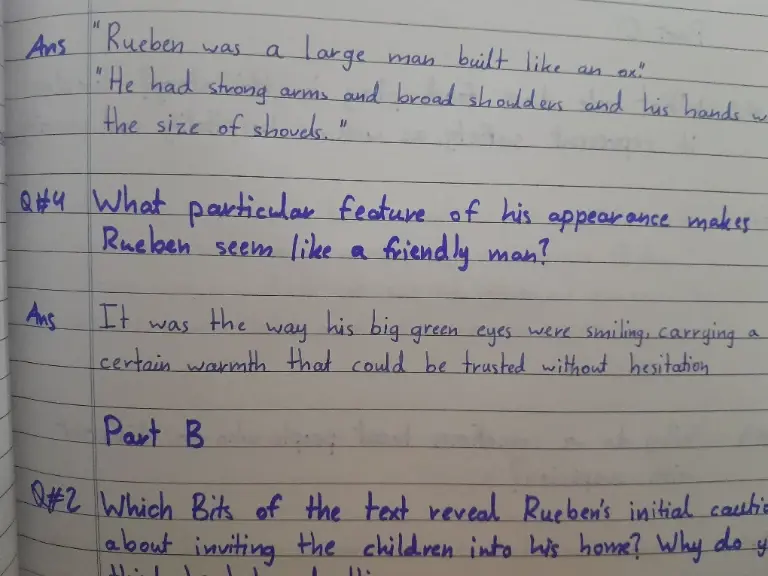 Ans "Rueben was a large man built like an ox."
"He had strong arms and broad shoulders and his hands
the size of shovels."
Q#4 What particular feature of his appearance makes
Rueben seem like a friendly man?
Ans It was the way his big green eyes were smiling, carrying a
certain warmth that could be trusted without hesitation
Part B
Q#2 Which Bits of the text reveal Rueben's initial
about inviting the children into his home? Why do